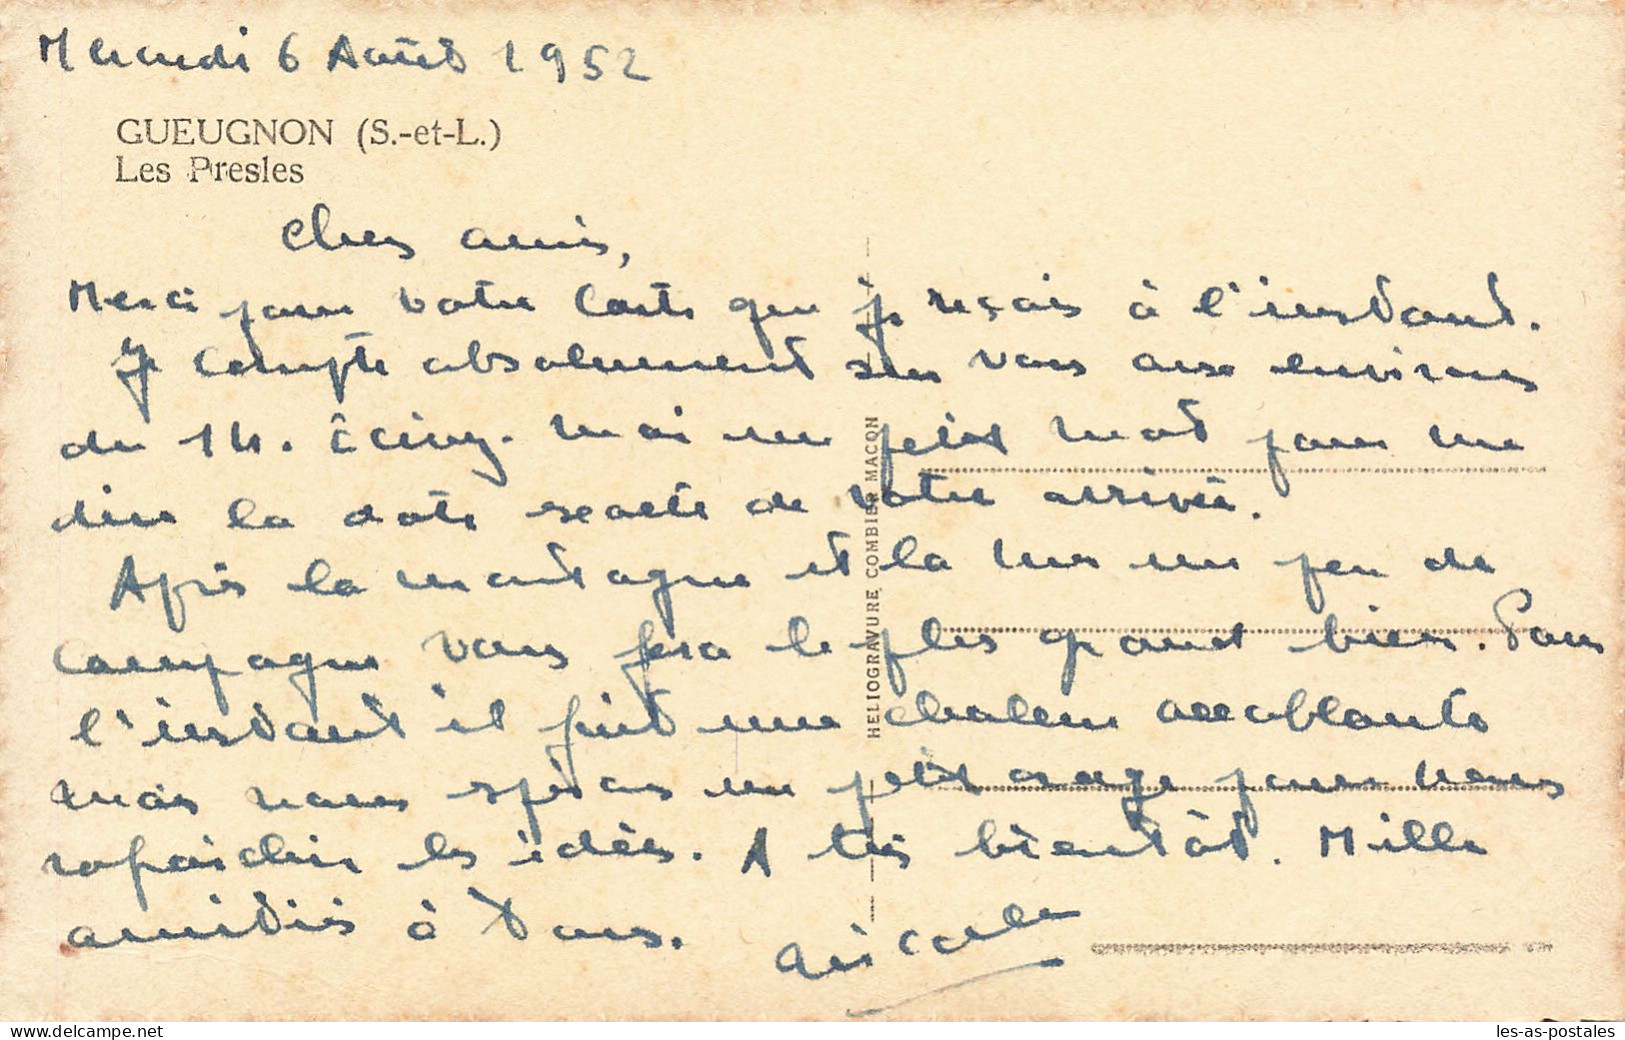 Mercredi 6 Août 1952
GUEUGNON (S.-et-L.)
Les Presles
Chers amis,
Merci pour votre carte que je reçois à l'instant.
Je compte absolument sur vous aux environs
du 14. Ecrivez-moi un petit mot pour me
dire la date exacte de votre arrivée.
Après la montagne et la mer un peu de
campagne vous fera le plus grand bien. Pour
l'instant il fait une chaleur accablante
mais nous espérons un petit orage pour nous
rafraichir les idées. A très bientôt. Mille
amitiés à tous.
Nicole
HELIOGRAVURE COMBIER MACON
les-as-postales.delcampe.net
les-as-postales